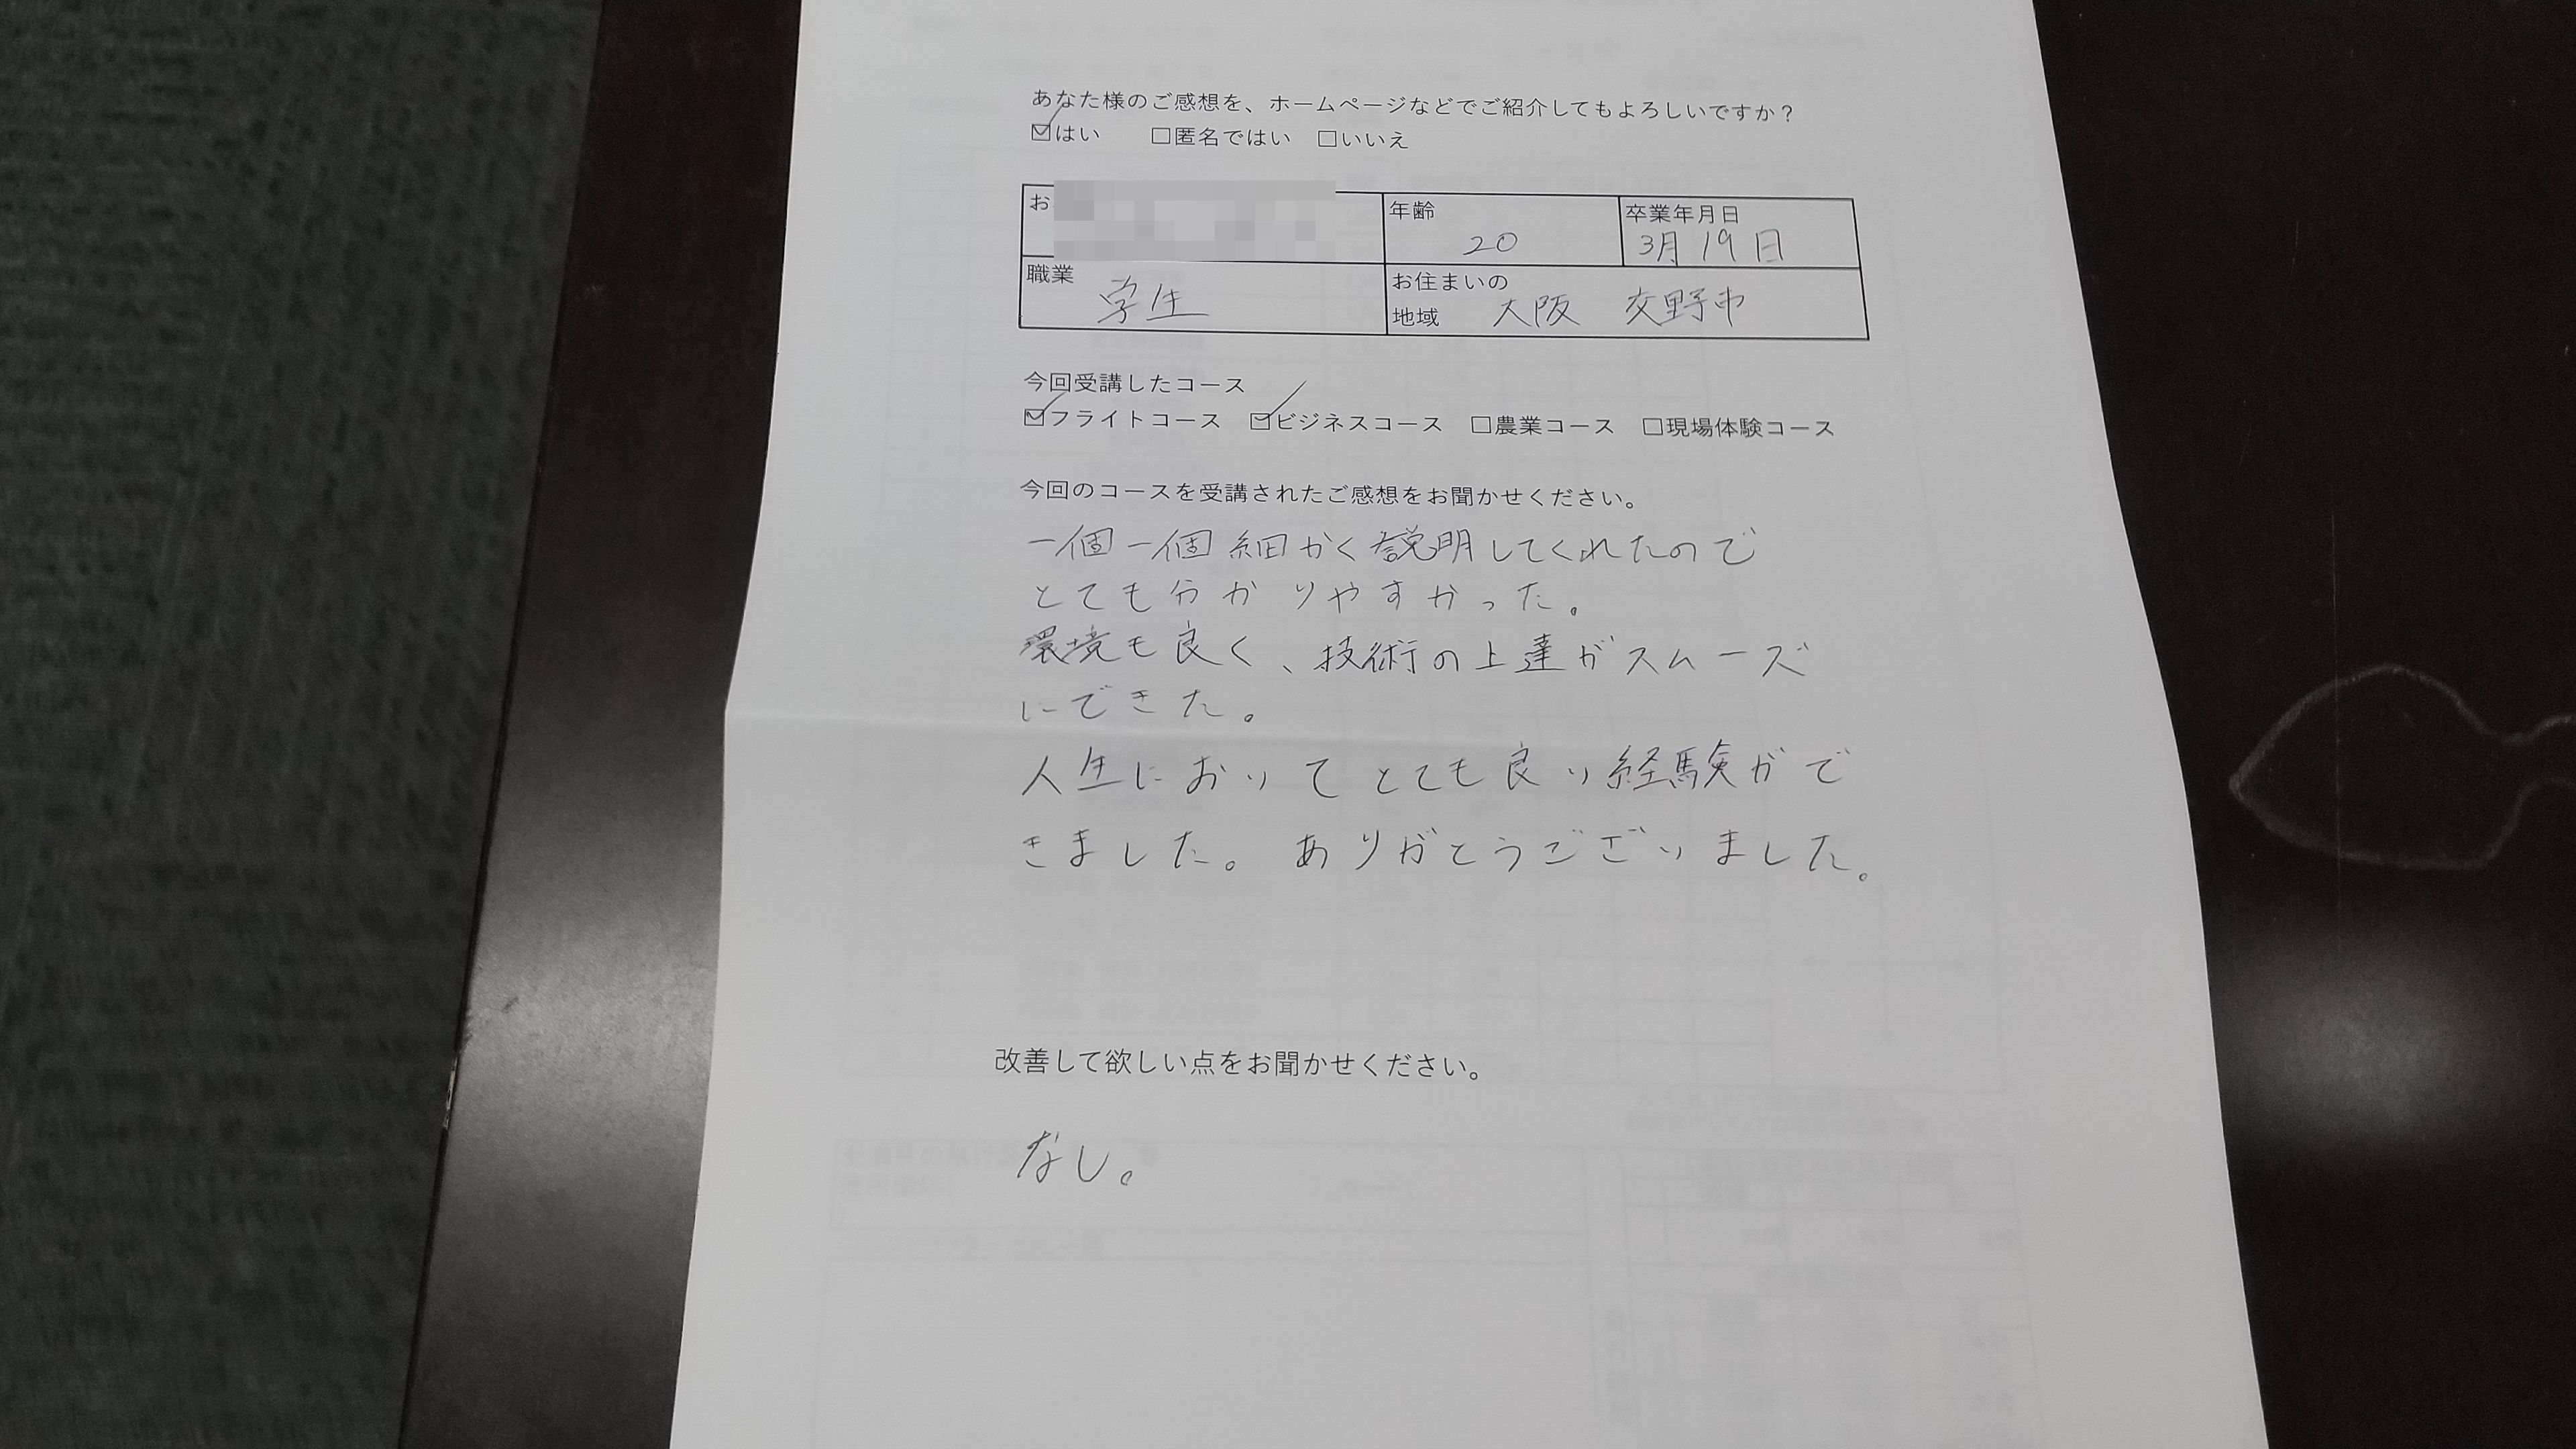 あなた様のご感想を、ホームページなどでご紹介してもよろしいですか？
☑はい □匿名ではい □いいえ
お
年齢
20
卒業年月日
3月19日
職業
学生
お住まいの
地域 大阪 交野市
今回受講したコース
☑フライトコース ☑ビジネスコース □農業コース □現場体験コース
今回のコースを受講されたご感想をお聞かせください。
一個一個細かく説明してくれたので
とても分かりやすかった。
環境も良く、技術の上達がスムーズ
にできた。
人生においてとても良い経験がで
きました。ありがとうございました。
改善して欲しい点をお聞かせください。
なし。